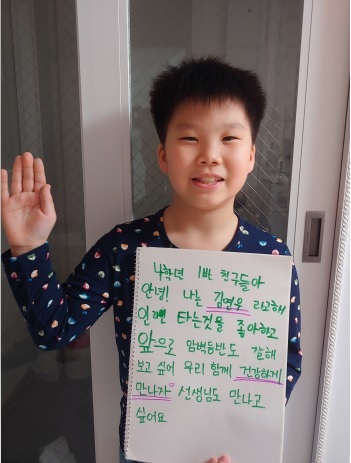 4학년 1반 친구들아
안녕! 나는 김연우 라고해
인라인 타는것을 좋아하고
앞으로 암벽등반도 잘해
보고 싶어 우리 함께 건강하게
만나자♡ 선생님도 만나고
싶어요